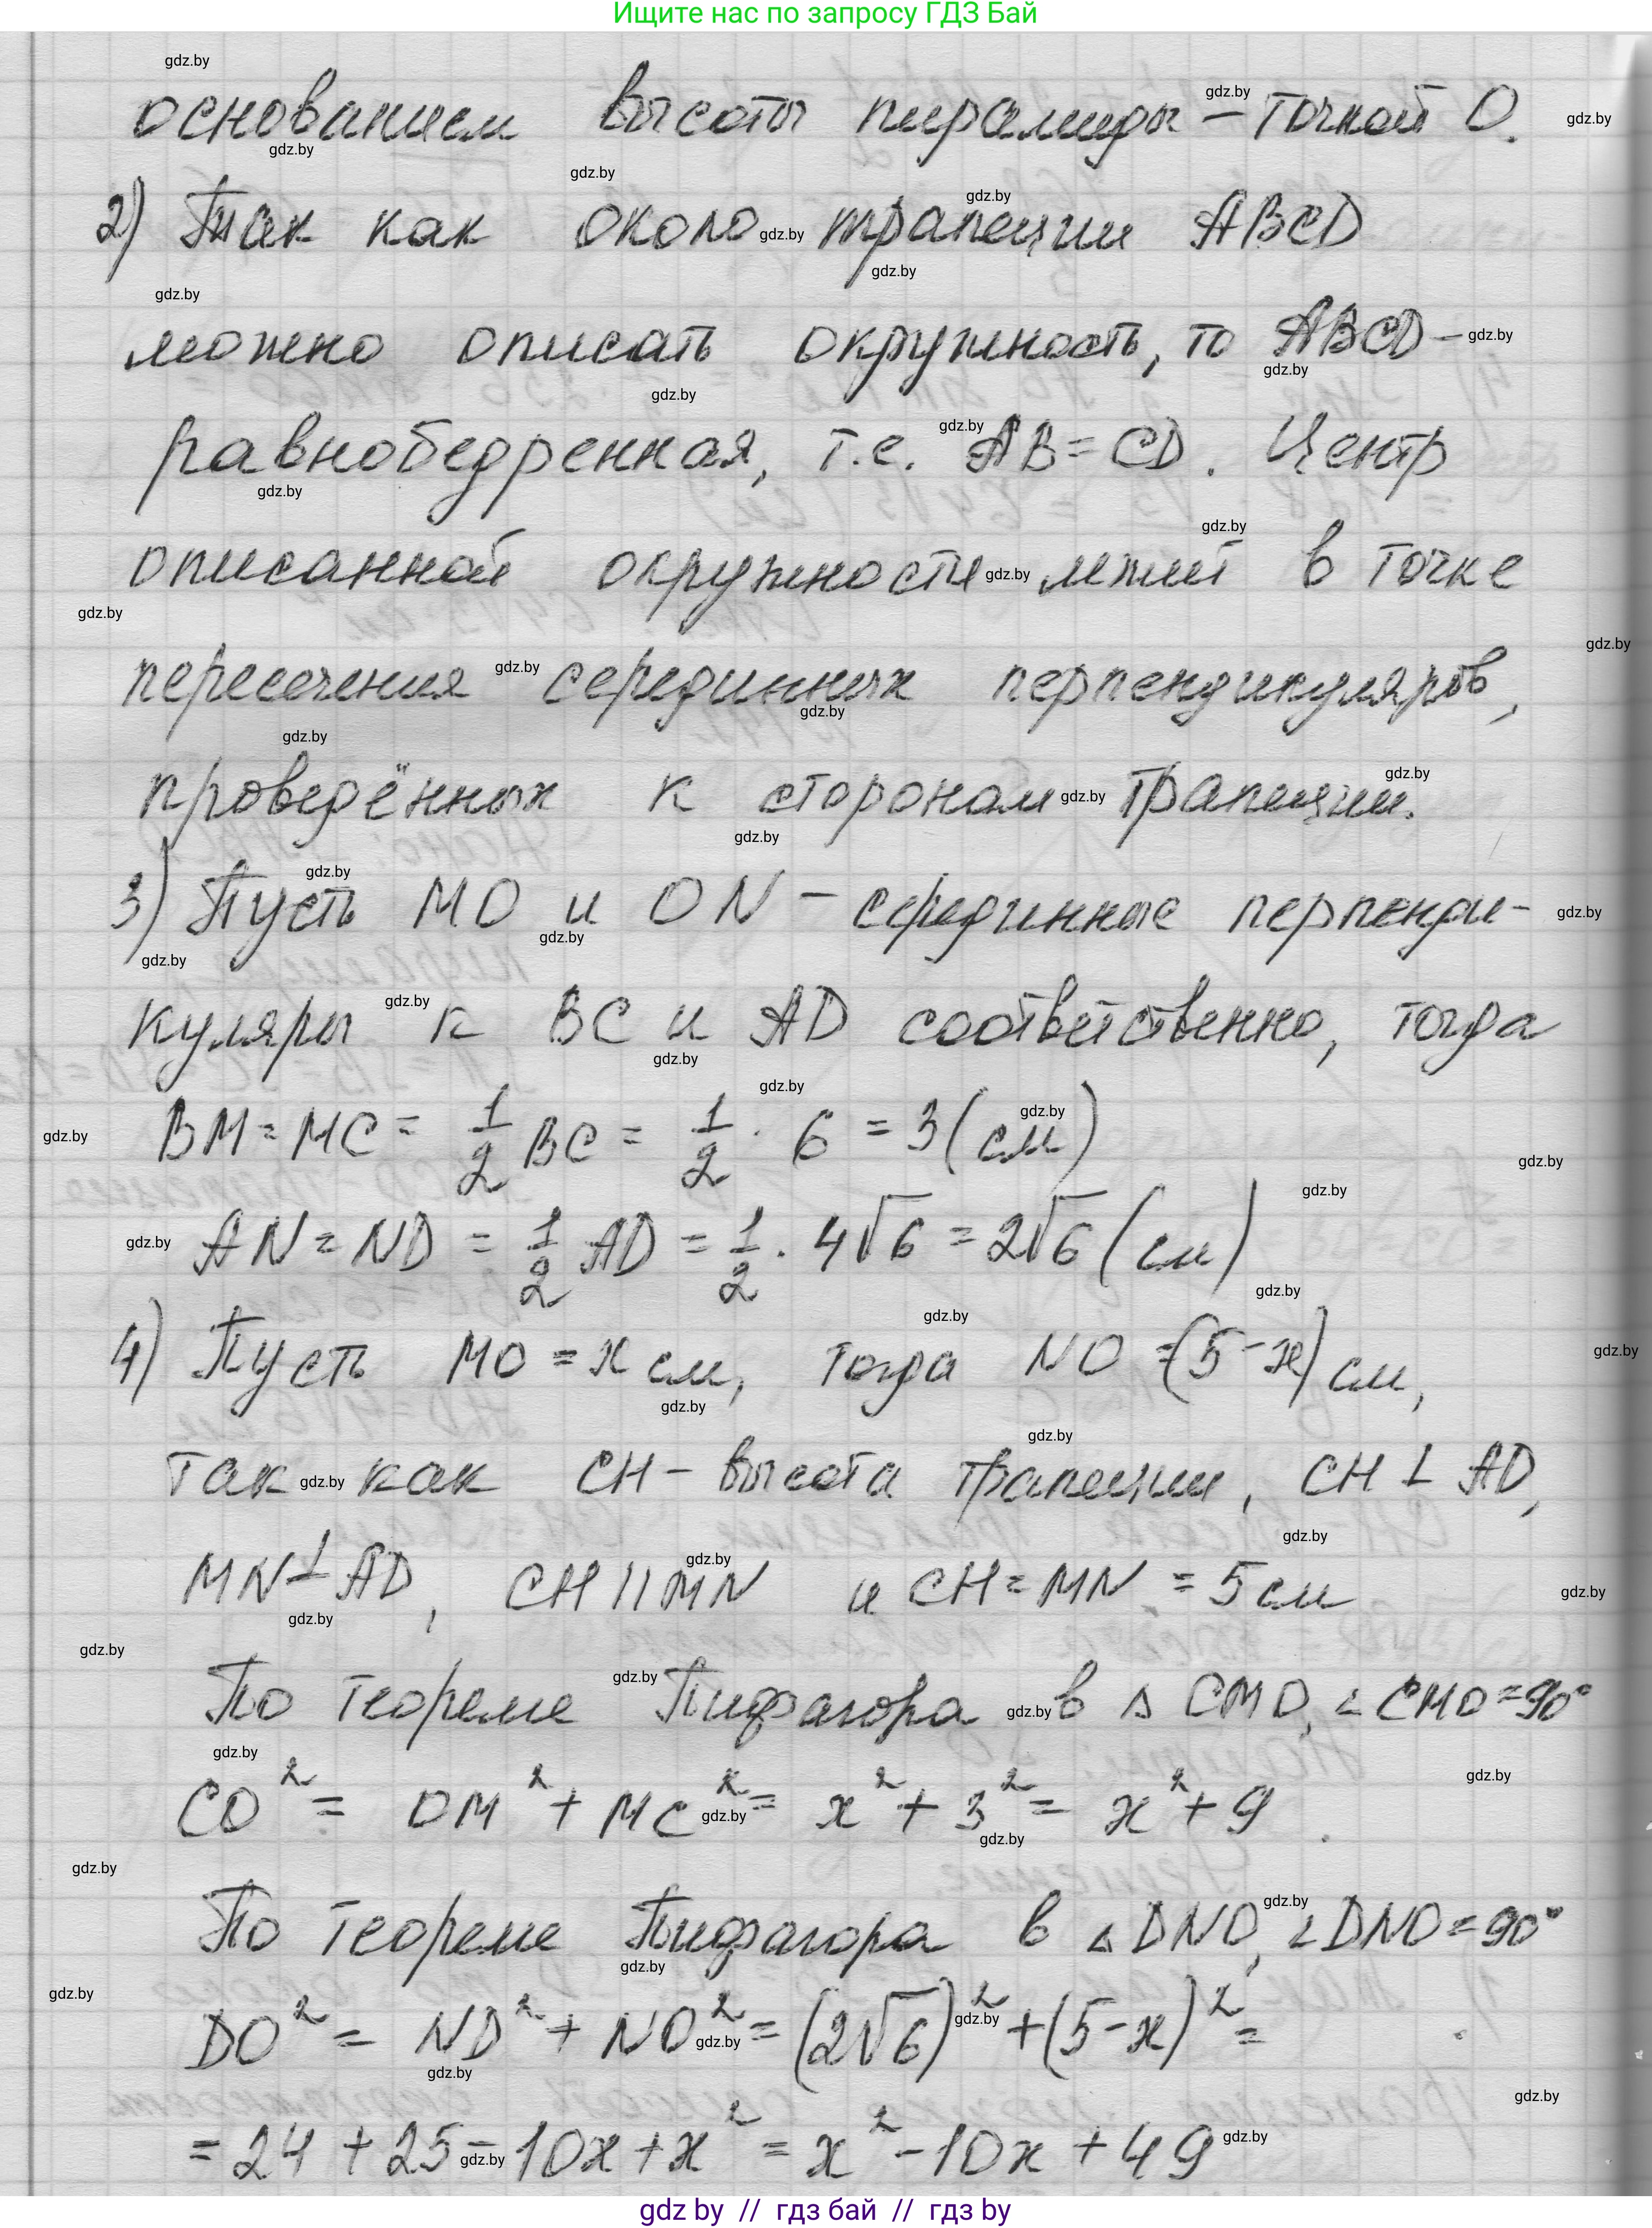 Ищите нас по запросу ГДЗ Бай
основанием высоты пирамиды – точкой О.
2) Так как около трапеции ABCD
можно описать окружность, то ABCD –
равнобедренная, т.е. AB = CD. Центр
описанной окружности лежит в точке
пересечения серединных перпендикуляров,
проведённых к сторонам трапеции.
3) Пусть MO и ON – серединные перпенди-
куляры к BC и AD соответственно, тогда
BM = MC = 1/2 BC = 1/2 · 6 = 3 (см)
AN = ND = 1/2 AD = 1/2 · 4√6 = 2√6 (см)
4) Пусть MO = x см, тогда NO = (5 - x) см,
так как CH – высота трапеции, CH ⊥ AD,
MN ⊥ AD, CH || MN и CH = MN = 5 см
По теореме Пифагора в △ CMO, ∠ CMO = 90°
CO² = OM² + MC² = x² + 3² = x² + 9.
По теореме Пифагора в △ DNO, ∠ DNO = 90°
DO² = ND² + NO² = (2√6)² + (5 - x)² =
= 24 + 25 - 10x + x² = x² - 10x + 49
gdz by // гдз бай // гдз by